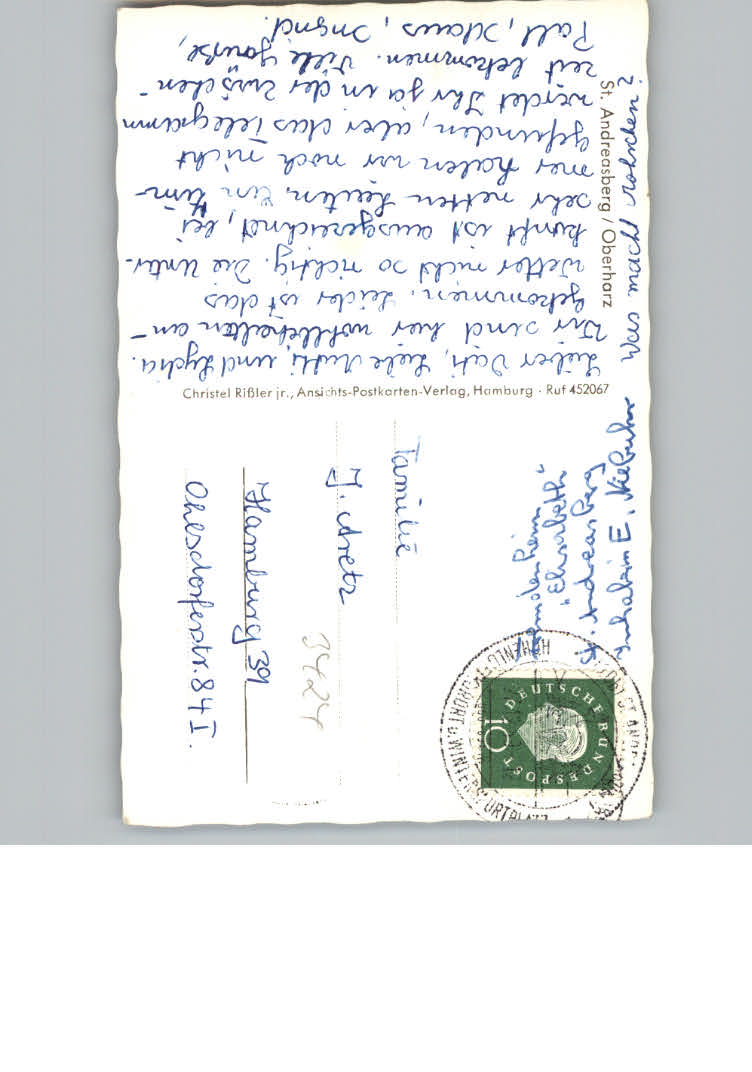 Lieber Vati, liebe Mutti, und Lydia.
Wir sind hier wohlbehalten an-
gekommen. Leider ist das
Wetter nicht so richtig. Die Unter-
kunft ist ausgezeichnet, bei
sehr netten Leuten. Ein Zim-
mer haben wir noch nicht
gefunden, aber das Telegramm
werdet Ihr ja in der zwischen-
zeit bekommen. Viele Grüße,
Ralf, Klaus, Ingrid.
Was macht
St. Andreasberg / Oberharz
Christel Rißler jr., Ansichts-Postkarten-Verlag, Hamburg · Ruf 452067
Fremdenheim
"Elisabeth"
St. Andreasberg
Inhaberin E. Niebuhr
DEUTSCHE BUNDESPOST
10
Familie
J. Aretz
Hamburg 39
Ohlsdorferstr. 84 I.
3424